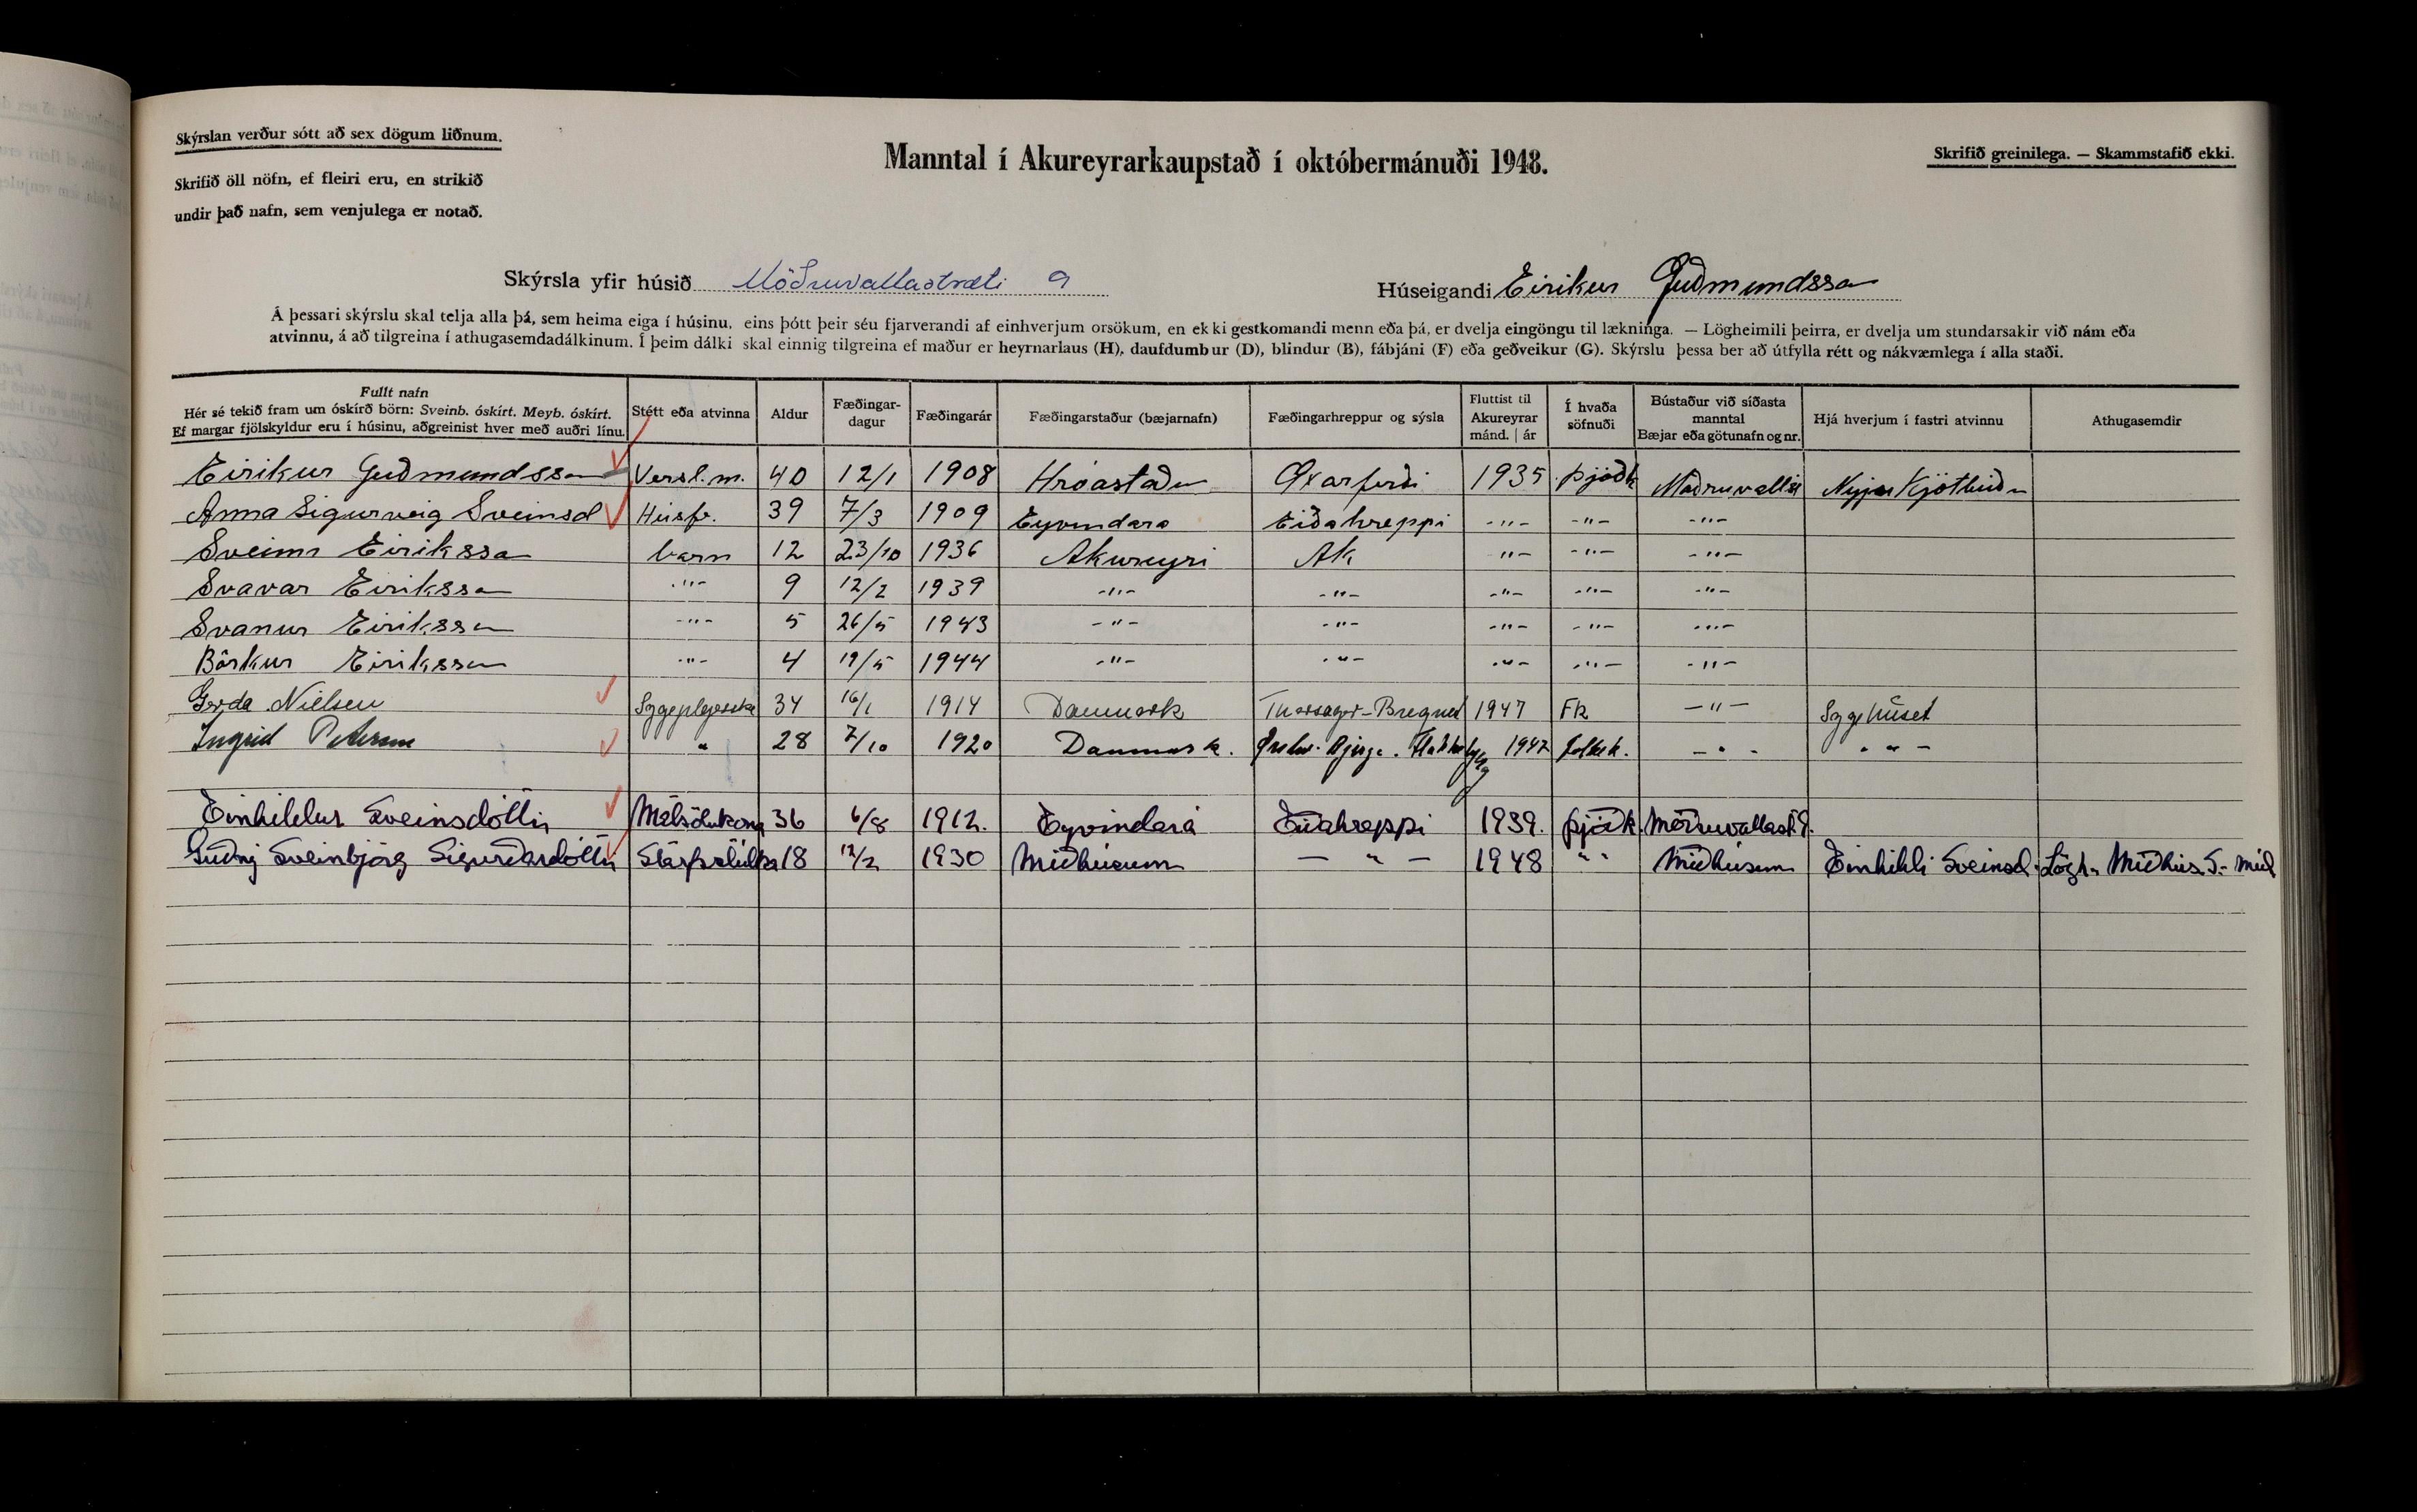 Skýrslan verður sótt að sex dögum liðnum.
Skrifið öll nöfn, ef fleiri eru, en strikið
undir það nafn, sem venjulega er notað.
Manntal í Akureyrarkaupstað í októbermánuði 1948.
Skrifið greinilega. — Skammstafið ekki.
Skýrsla yfir húsið Möðruvallastræti 9
Húseigandi Eirikur Guðmundsson
Á þessari skýrslu skal telja alla þá, sem heima eiga í húsinu, eins þótt þeir séu fjarverandi af einhverjum orsökum, en ekki gestkomandi menn eða þá, er dvelja eingöngu til lækninga. — Lögheimili þeirra, er dvelja um stundarsakir við nám eða
atvinnu, á að tilgreina í athugasemdadálkinum. Í þeim dálki skal einnig tilgreina ef maður er heyrnarlaus (H), daufdumbur (D), blindur (B), fábjáni (F) eða geðveikur (G). Skýrslu þessa ber að útfylla rétt og nákvæmlega í alla staði.
Fullt nafn
Hér sé tekið fram um óskírð börn: Sveinb. óskírt. Meyb. óskírt.
Ef margar fjölskyldur eru í húsinu, aðgreinist hver með auðri línu.
Stétt eða atvinna
Aldur
Fæðingar-
dagur
Fæðingarár
Fæðingarstaður (bæjarnafn)
Fæðingarhreppur og sýsla
Fluttist til
Akureyrar
mánd. | ár
Í hvaða
söfnuði
Bústaður við síðasta
manntal
Bæjar eða götunafn og nr.
Hjá hverjum í fastri atvinnu
Athugasemdir
Eirikur Guðmundsson Versl.m. 40 12/1 1908 Hróastaðu Öxarfirði 1935 Þjóðk Möðruvallst Nýja Kjötbúðin
Anna Sigurveig Sveinsd Húsfr. 39 7/3 1909 Eyvindara Eiðahreppi -"- -"- -"-
Sveinn Eirikssn barn 12 23/10 1936 Akureyri Ak -"- -"- -"-
Svavar Eirikssn -"- 9 12/2 1939 -"- -"- -"- -"- -"-
Svanur Eirikssn -"- 5 26/5 1943 -"- -"- -"- -"- -"-
Börkur Eirikssn -"- 4 19/5 1944 -"- -"- -"- -"- -"-
Gerda Nielsen Sygeplejerske 34 16/1 1914 Danmark Thorsager-Bregnet 1947 Fk -"- Sygehúset
Ingrid Petersen " 28 7/10 1920 Danmark. 1947 folkek. -"- -"-
Þinhildur Sveinsdóttir Matsölukona 36 6/8 1912. Eyvindará Eiðahreppi 1939. þjóðk. Möðruvallast. 9.
Guðný Sveinbjörg Sigurðardóttir Starfsstúlka 18 12/2 1930 Miðhúsum — " — 1948 " Miðhúsum Þinhildi Sveinsd. Lögh. Miðhús. S.-Múl